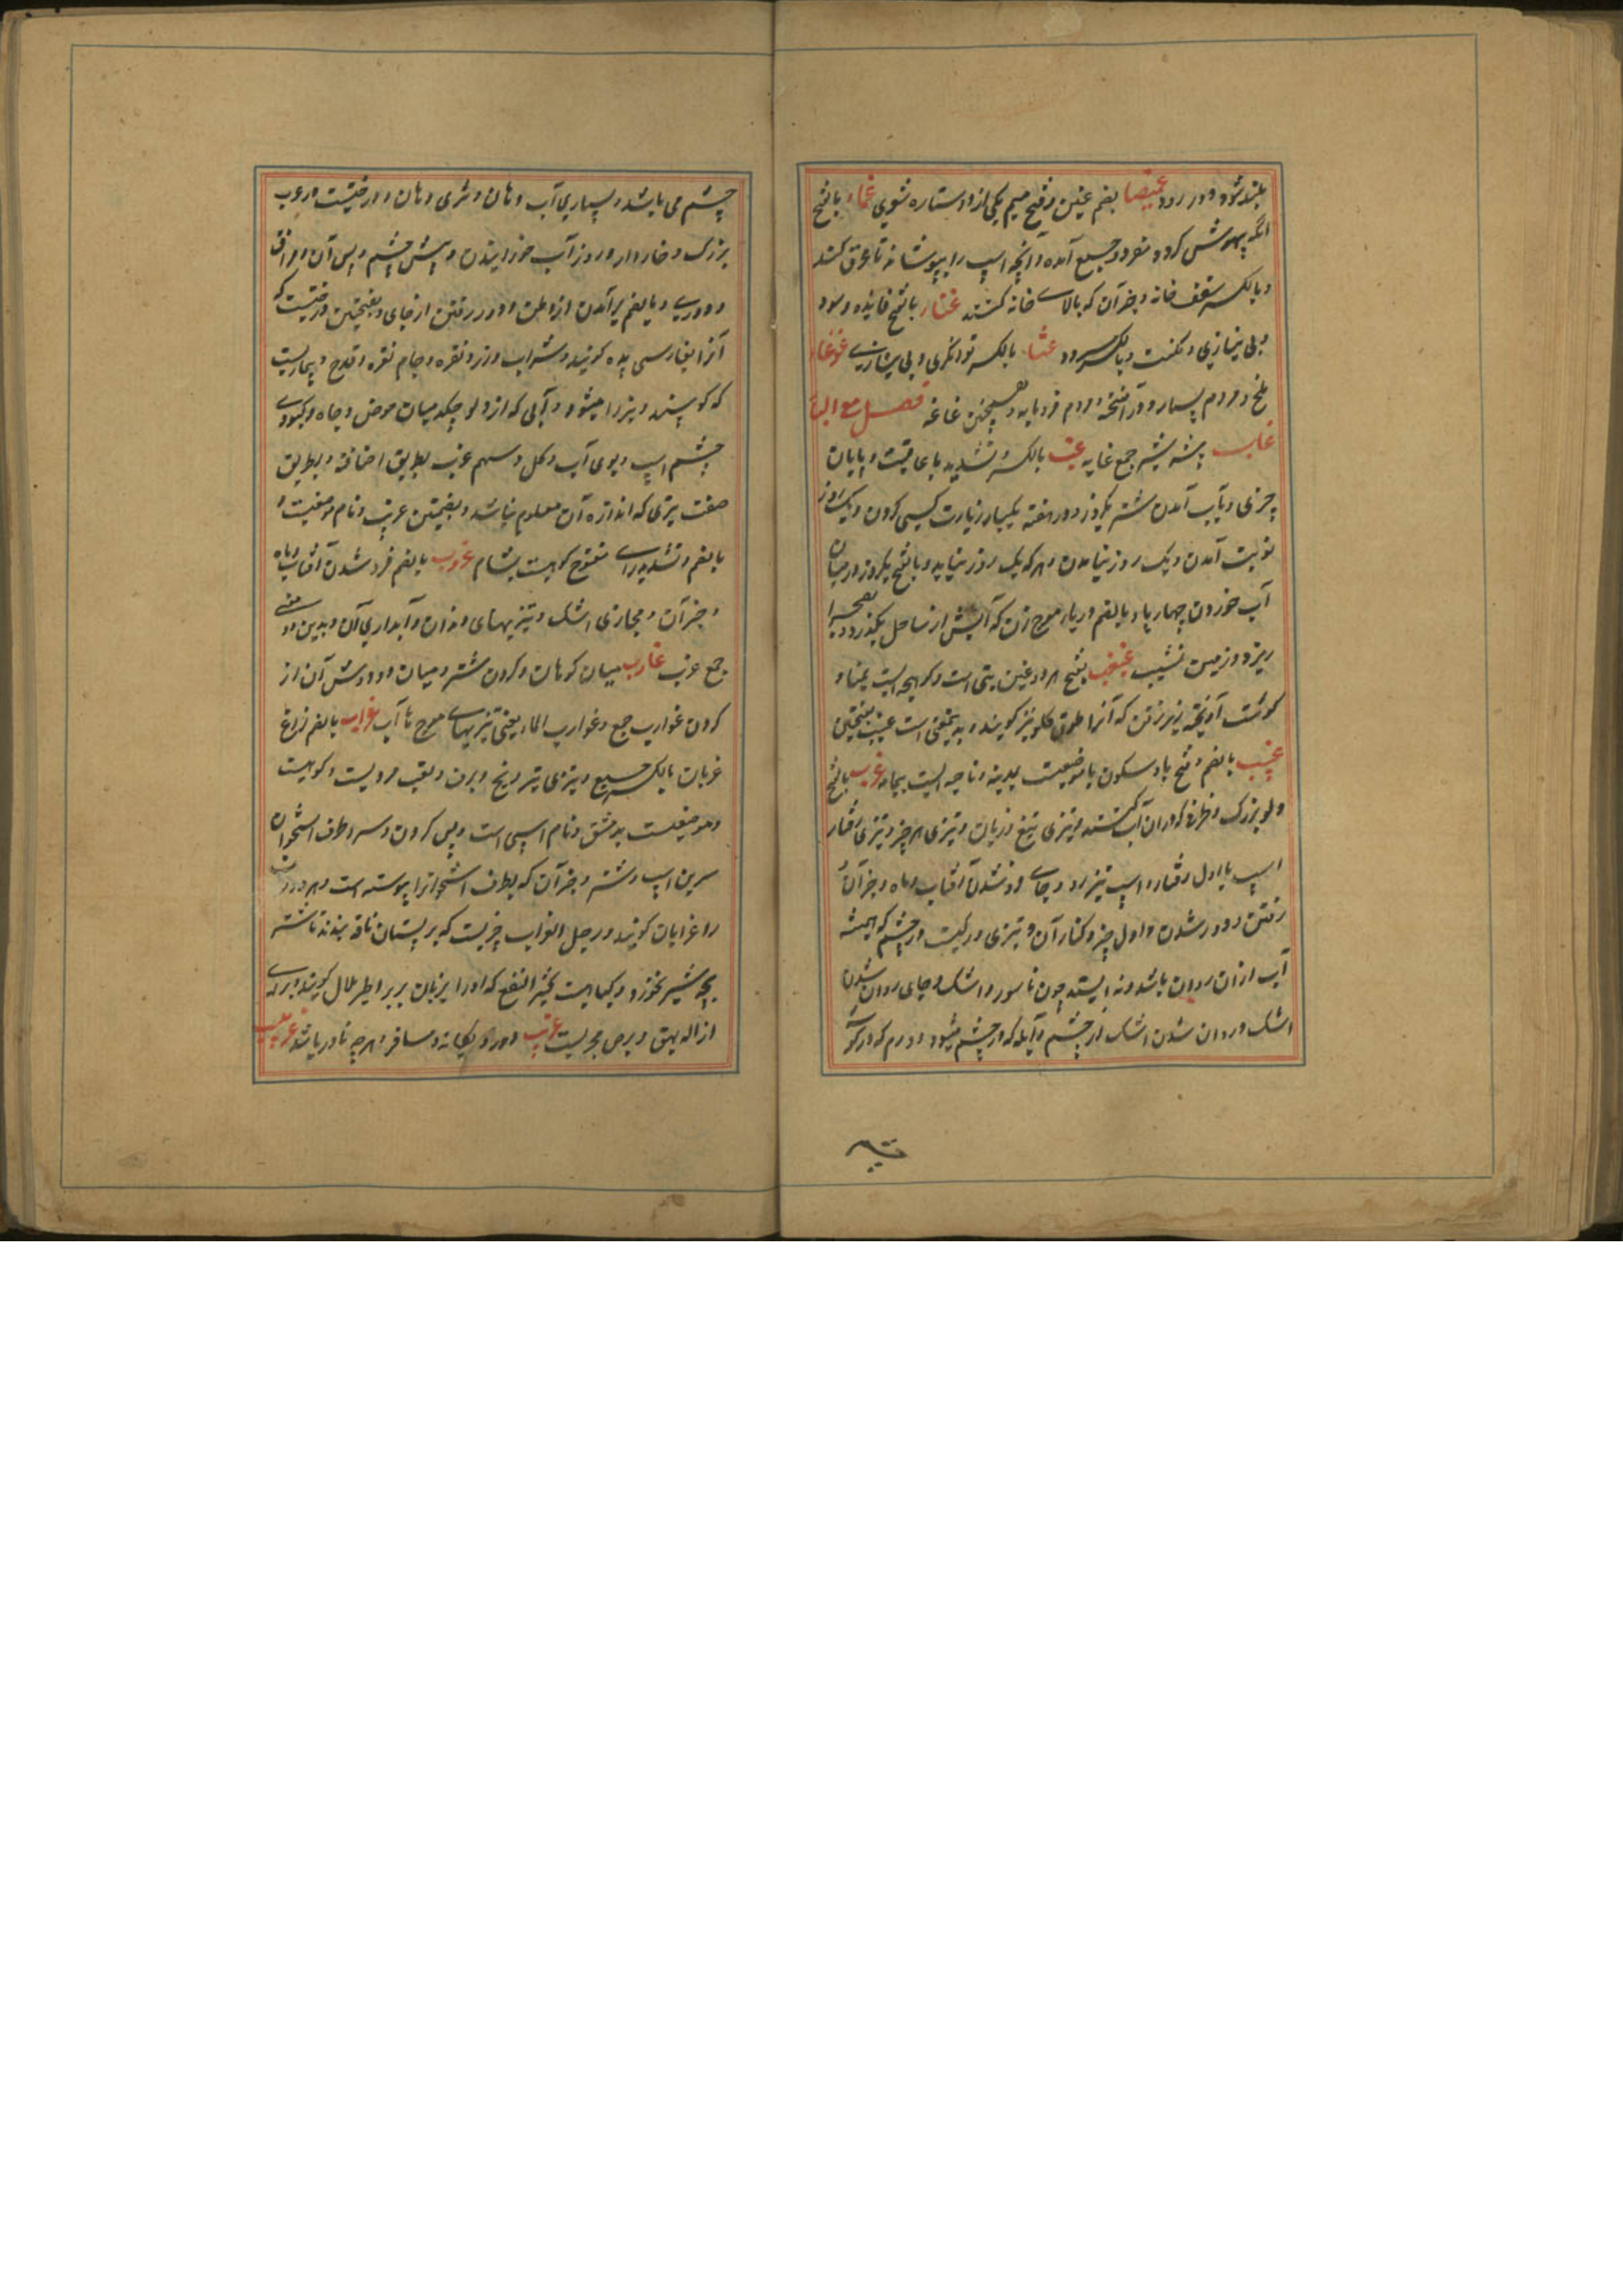 بلند شود و در رود غمیصا بضم غین و فتح میم یکی از دو ستاره شعری غماء بالفتح
آنکه بیهوش کردد مفرد و جمیع آمده و آنچه اسپ را بپوشانند تا عرق کند
و بالکسر سقف خانه و جز آن که بالای خانه کنند غناء بالفتح فایده و سود
و بی نیازی و مکنت و بالکسر سرود غنا بالکسر توانکری و بی نیازی غوغا
ملخ و مردم بسیار و در آمیخته و مردم فرومایه و همچنین غاغه فصل مع البا
غاب بیشه جمع غابه غب بالکسر و تشدید با عاقبت و پایان
چیزی و بآب آمدن شتر یکروز و در هفته یکبار زیارت کسی کردن و یک روز
نوبت آمدن و یک روز نیامدن و هر که یک روز نیاید و بالفتح یکروز در میان
آب خوردن چهارپا و بالضم دریا موج زن که آبش از ساحل بگذرد و بصحرا
ریزد و زمین نشیب غبغب بفتح هر دو غین بتی است و کوهچه ایست بمنا و
کوشت آویخته زیر زقن که آنرا طوق کلو نیز کویند و بدینمعنی است غبب بفتحتین
غبیب بالضم و فتح با و سکون یا موضعیست بمدینه و ناحیه ایست بیمامه غرب بالفتح
دلو بزرک که در آن آب کشند و تیزی تیغ و زبان و تیزی هر چیز و تیزی رفتار
اسپ یا اول رفتار و اسپ تیز رو و جای فروشدن آفتاب و ماه و جز آن
رفتن و دور شدن و اول چیز و کنار آن و تیزی و رکیست در چشم که همیشه
آب از آن روان باشد و نه ایستد چون ناسور و اشک و جای روان شدن
اشک و روان شدن اشک از چشم و آبله که در چشم میشود و ورم که در کنج
چشم می باشد و بسیاری آب دهان و تری دهان و درختیست در عرب
بزرک و خاردار و روز آب خورانیدن و پیش چشم و پس آن و فراق
و دوری و بالضم برآمدن از وطن و دور رفتن از جای و بفتحتین درختیست که
آنرا بفارسی پده کویند و شراب و زر و نقره و جام نقره و قدح و بیماریست
که کوسپند و بز را میشود و آبی که از دلو چکد میان حوض و چاه و کبودی
چشم اسپ و بوی آب و کل و سهم غرب بطریق اضافه و بطریق
صفت تیری که اندازه آن معلوم نباشد و بضمتین غریب و نام موضعیست و
بالضم و تشدید رای مفتوح کوهیست بشام غروب بالضم فرو شدن آفتاب و ماه
و جز آن و مجاری اشک و تیزیهای دندان و آبداری آن و بدین دو معنی
جمع غرب غارب میان کوهان و کردن شتر و میان دو دوش آن از
کردن غوارب جمع و غوارب الماء یعنی تیزیهای موج ها آب غراب بالضم زاغ
غربان بالکسر جمیع و تیزی تبر و یخ و برف و لقب مردیست و کوهیست
و موضعیست بدمشق و نام اسپی است و پس کردن و سر و طرف استخوان
سرین اسپ و شتر و جز آن که بطرف استخوانرا پیوسته است و هر دو ران
را غرابان کویند و رجل الغراب چیزیست که بر پستان ناقه بندند تا شتر
بچه شیر نخورد و کیاهیست کثیر النفع که او را بزبان بربر اطریلال کویند و برای
ازاله بهق و برص مجربست غریب دور و بیکانه و مسافر و هر چه نادر باشد غرابیب